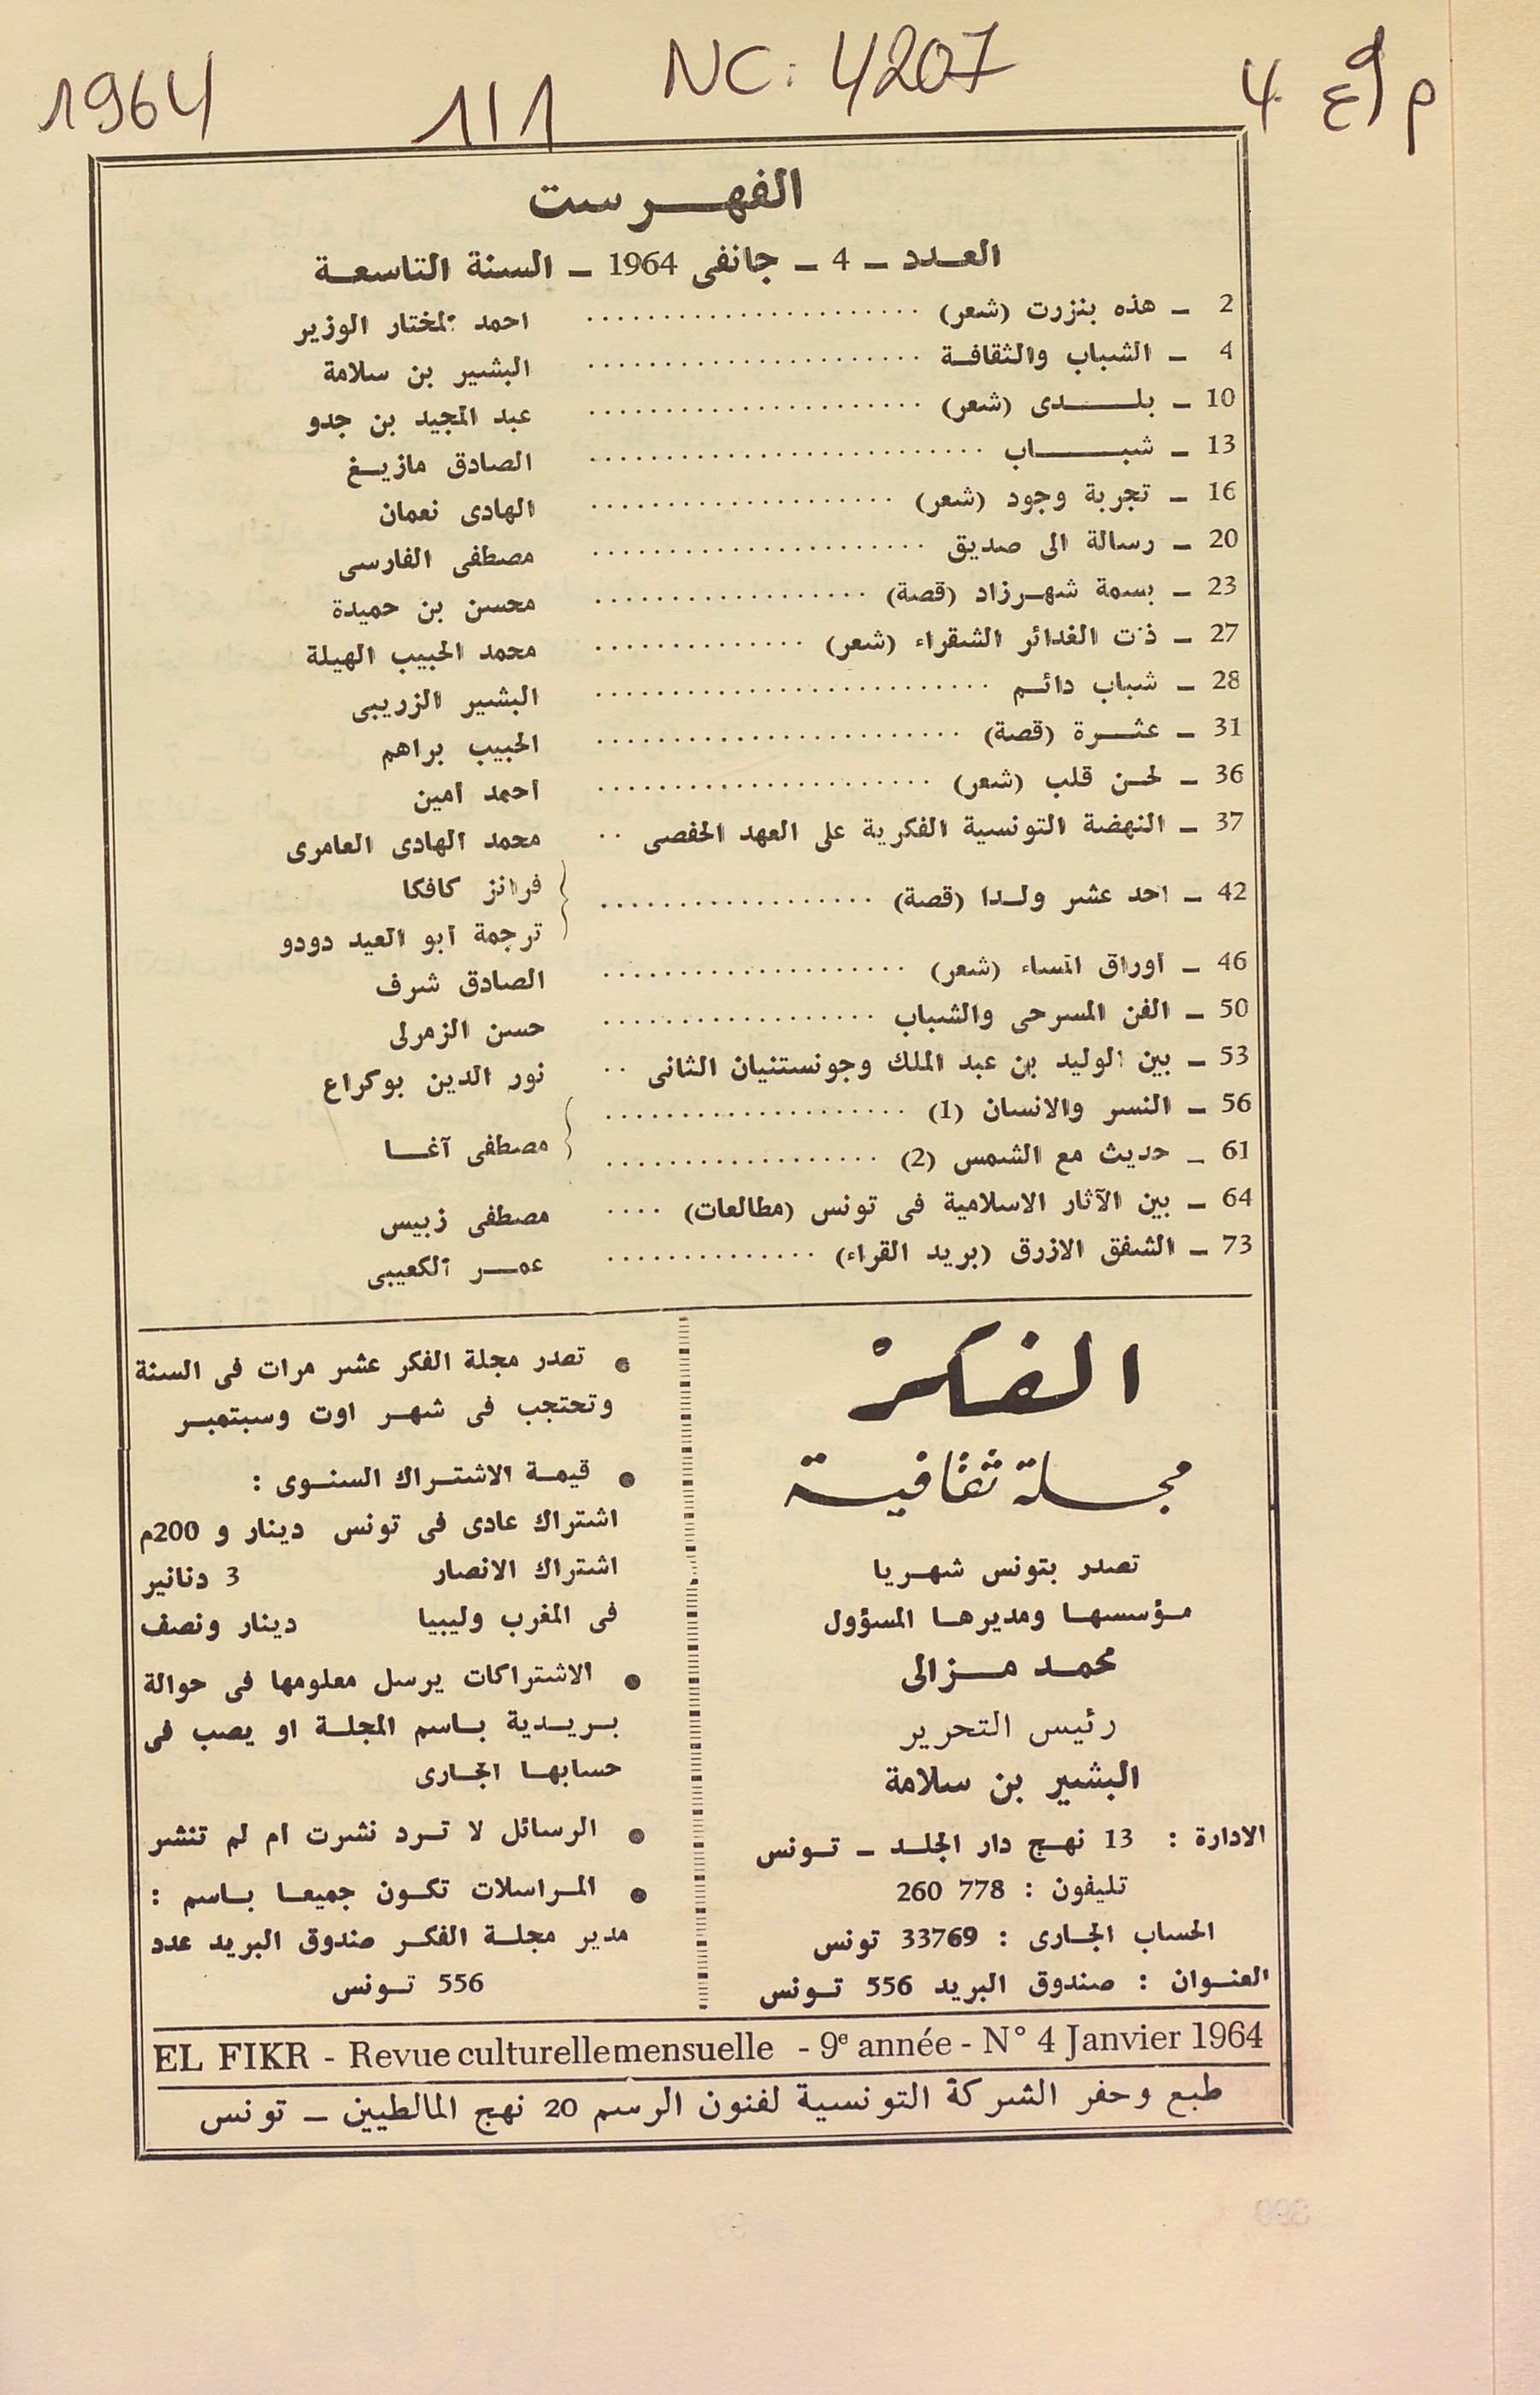 1964
111
NC: 4207
م 9 ع 4
الفهرست
العدد - 4 - جانفى 1964 - السنة التاسعة
2 - هذه بنزرت (شعر) .... احمد المختار الوزير
4 - الشباب والثقافة .... البشير بن سلامة
10 - بلدى (شعر) .... عبد المجيد بن جدو
13 - شباب .... الصادق مازيغ
16 - تجربة وجود (شعر) .... الهادى نعمان
20 - رسالة الى صديق .... مصطفى الفارسى
23 - بسمة شهرزاد (قصة) .... محسن بن حميدة
27 - ذات الغدائر الشقراء (شعر) .... محمد الحبيب الهيلة
28 - شباب دائم .... البشير الزريبى
31 - عثرة (قصة) .... الحبيب براهم
36 - لحن قلب (شعر) .... احمد امين
37 - النهضة التونسية الفكرية على العهد الحفصى .. محمد الهادى العامرى
42 - احد عشر ولدا (قصة) .... فرانز كافكا
ترجمة ابو العيد دودو
46 - اوراق المساء (شعر) .... الصادق شرف
50 - الفن المسرحى والشباب .... حسن الزمرلى
53 - بين الوليد بن عبد الملك وجونستنيان الثانى .. نور الدين بوكراع
56 - النسر والانسان (1) ....
مصطفى آغا
61 - حديث مع الشمس (2) ....
64 - بين الآثار الاسلامية فى تونس (مطالعات) .... مصطفى زبيس
73 - الشفق الازرق (بريد القراء) .... عمر الكعيبى
الفكر
مجلة ثقافية
تصدر بتونس شهريا
مؤسسها ومديرها المسؤول
محمد مزالى
رئيس التحرير
البشير بن سلامة
الادارة : 13 نهج دار الجلد - تونس
تليفون : 778 260
الحساب الجارى : 33769 تونس
العنوان : صندوق البريد 556 تونس
● تصدر مجلة الفكر عشر مرات فى السنة
وتحتجب فى شهر اوت وسبتمبر
● قيمة الاشتراك السنوى :
اشتراك عادى فى تونس دينار و 200م
اشتراك الانصار 3 دنانير
فى المغرب وليبيا دينار ونصف
● الاشتراكات يرسل معلومها فى حوالة
بريدية باسم المجلة او يصب فى
حسابها الجارى
● الرسائل لا ترد نشرت ام لم تنشر
● المراسلات تكون جميعا باسم :
مدير مجلة الفكر صندوق البريد عدد
556 تونس
EL FIKR - Revue culturelle mensuelle - 9e année - N° 4 Janvier 1964
طبع وحفر الشركة التونسية لفنون الرسم 20 نهج المالطيين - تونس